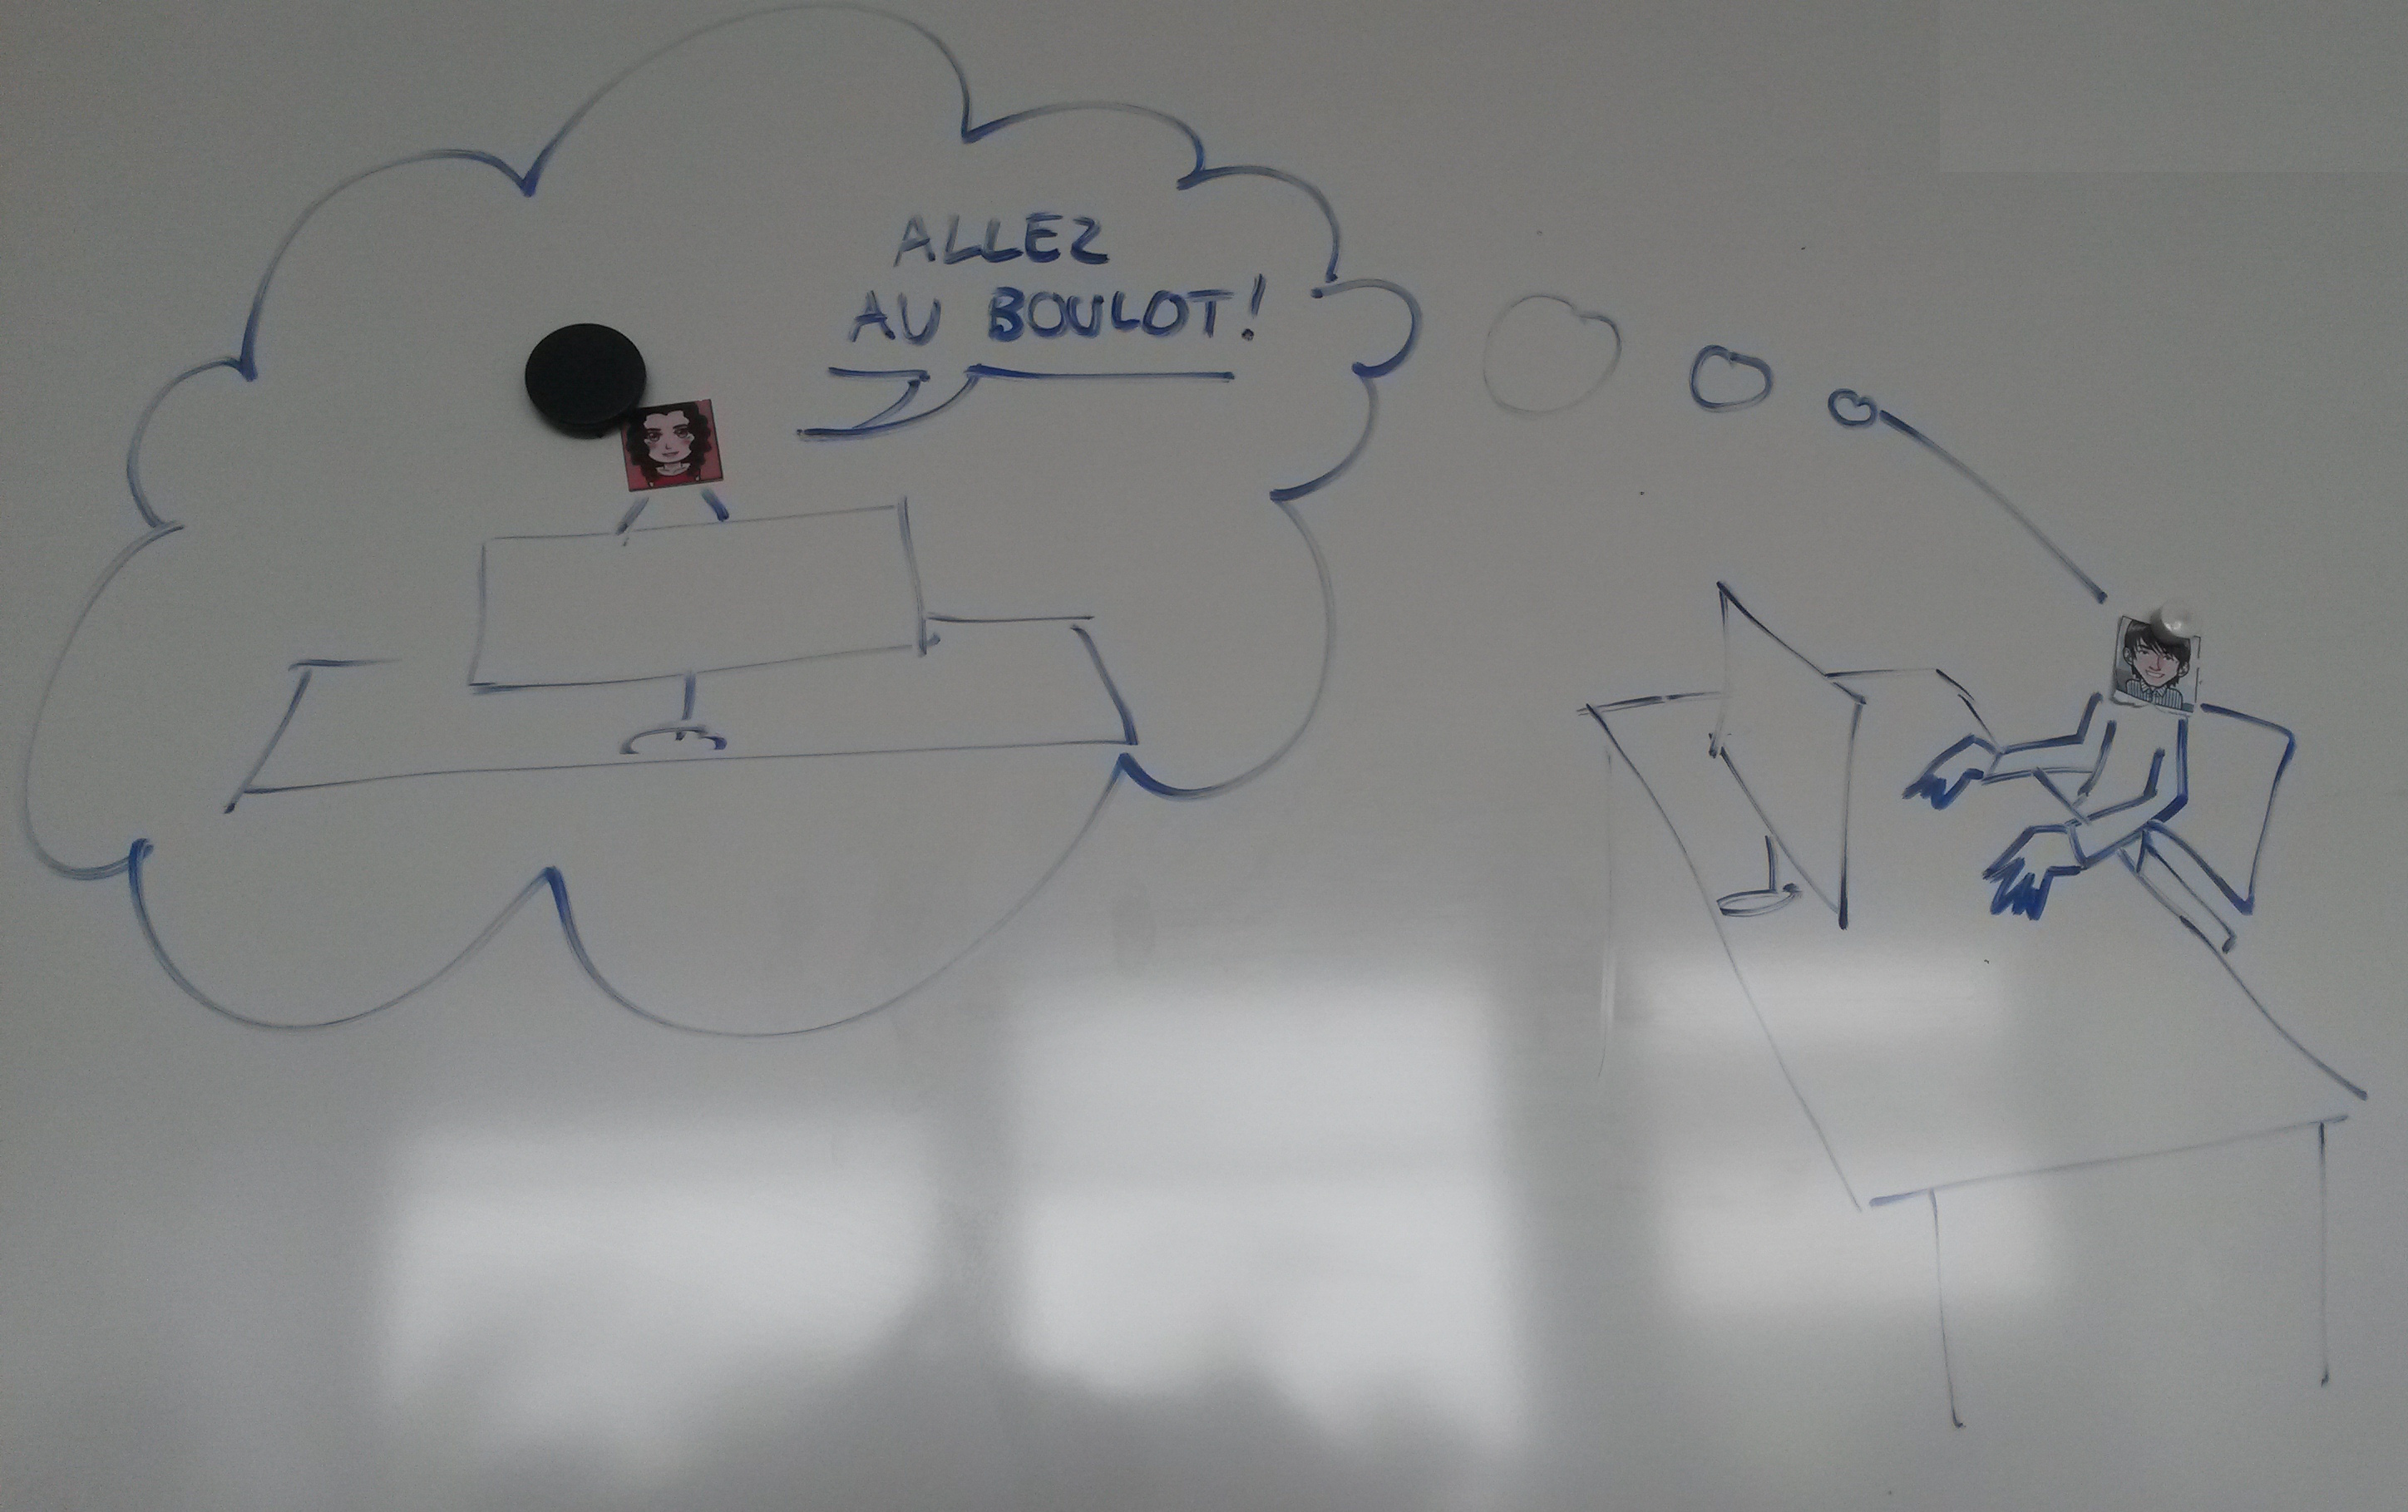 ALLEZ
AU BOULOT!